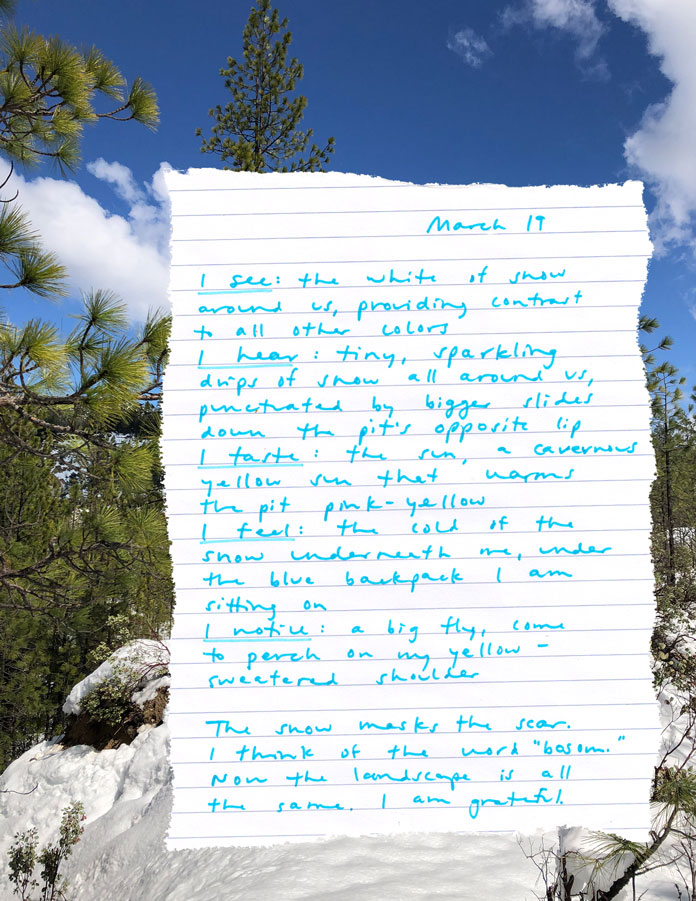 March 19
I see: the white of snow
around us, providing contrast
to all other colors
I hear: tiny, sparkling
drips of snow all around us,
punctuated by bigger slides
down the pit's opposite lip
I taste: the sun, a cavernous
yellow sun that warms
the pit pink-yellow
I feel: the cold of the
snow underneath me, under
the blue backpack I am
sitting on
I notice: a big fly, come
to perch on my yellow-
sweatered shoulder
The snow masks the scar.
I think of the word "bosom."
Now the landscape is all
the same. I am grateful.